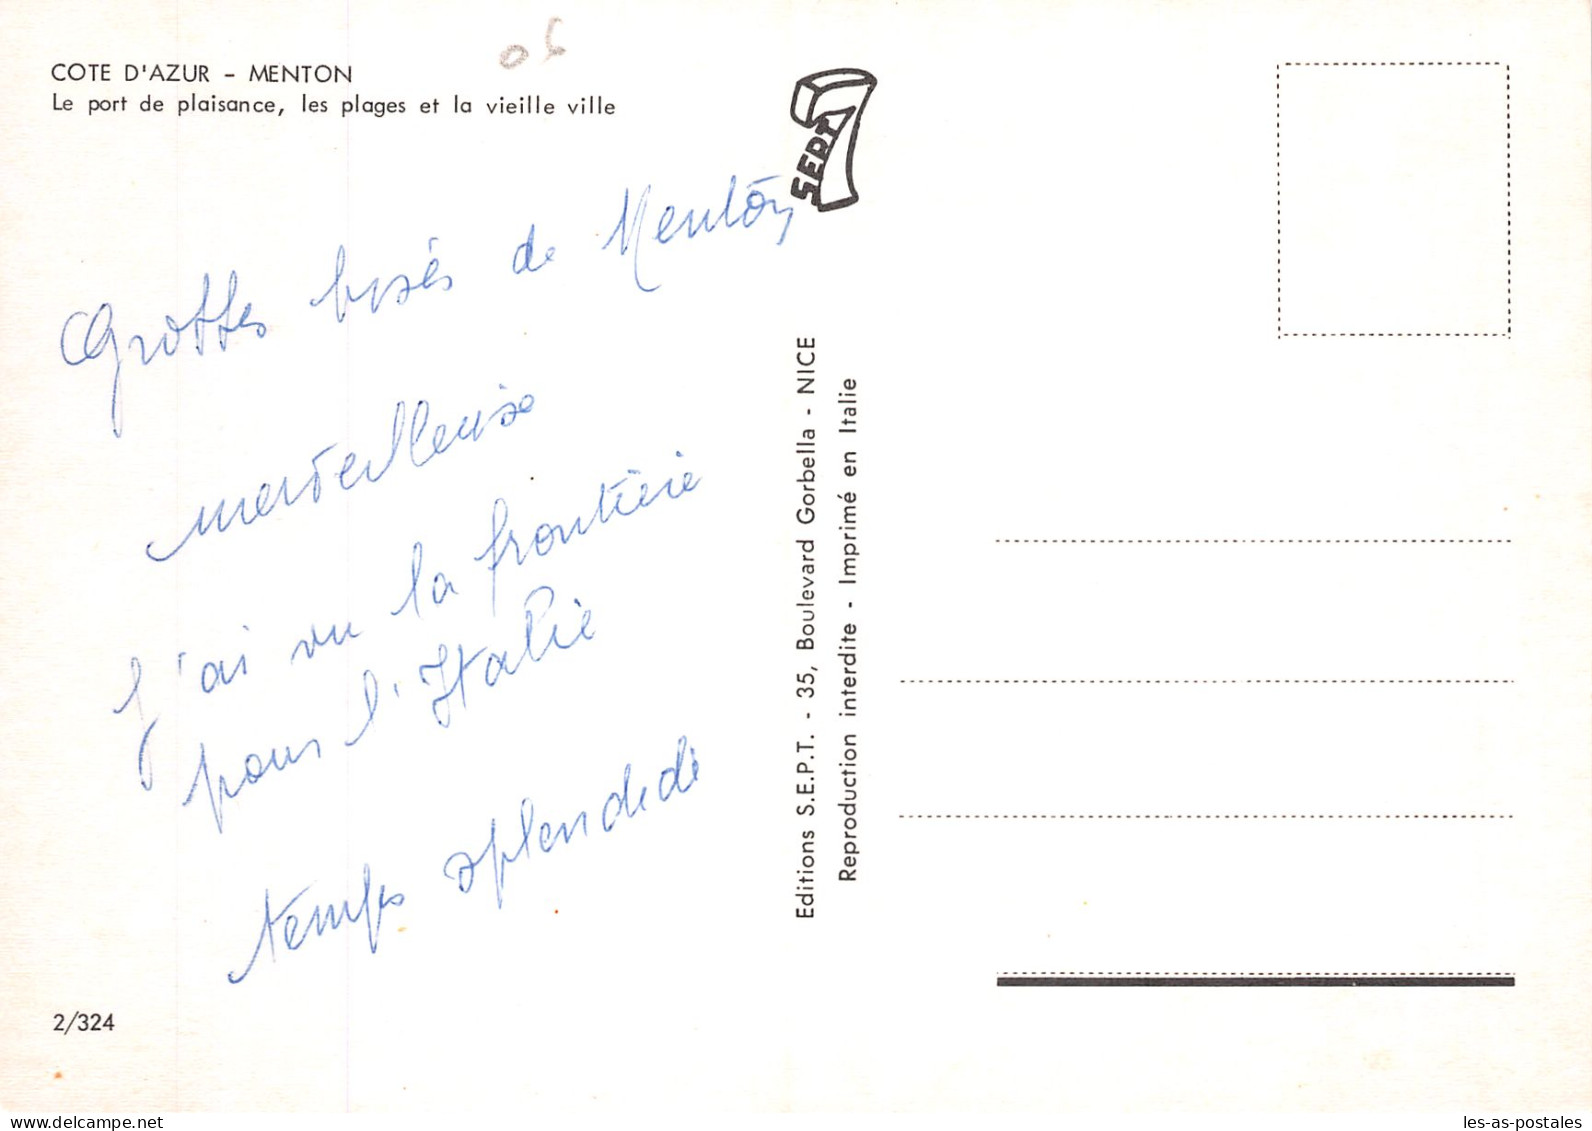 06
COTE D'AZUR - MENTON
Le port de plaisance, les plages et la vieille ville
SEPT
7
Grottes de Menton
merveilleuse
J'ai vu la frontière
pour l'Italie
temps splendide
2/324
Editions S.E.P.T. - 35, Boulevard Gorbella - NICE
Reproduction interdite - Imprimé en Italie
les-as-postales